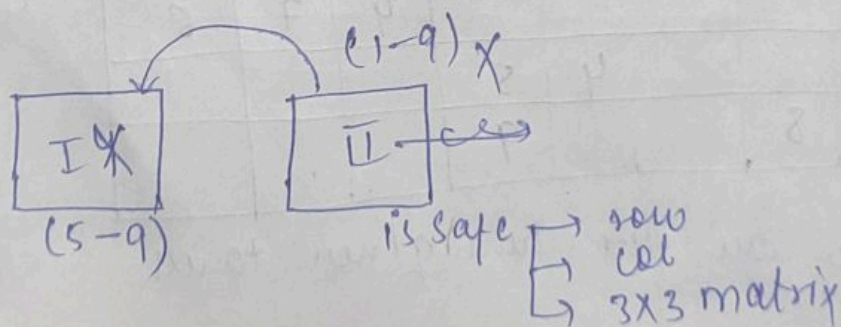 (1-9) X
I
II
(5-9)
is safe → row
→ col
→ 3x3 matrix